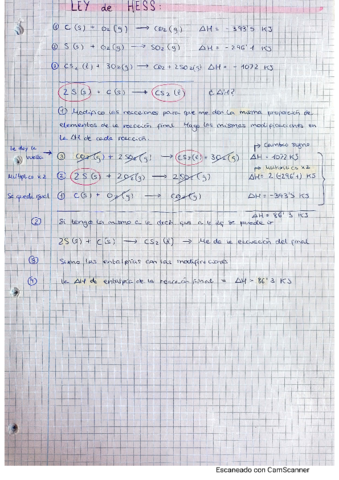 LEY de HESS:
① C (s) + O₂ (g) → CO₂ (g) ΔH = - 393'5 KJ
② S (s) + O₂ (g) → SO₂ (g) ΔH = - 296'1 KJ
③ CS₂ (l) + 3O₂ (g) → CO₂ + 2SO₂(g) ΔH = - 1072 KJ
2S(s) + C(s) → CS₂ (l) ¿ΔH?
① Modifico las reacciones para que me den la misma proporción de
elementos de la reacción final. Hago las mismas modificaciones en
la ΔH de cada reacción.
Cambio signo
Le doy la vuelta
③ CO₂ (g) + 2SO₂(g) → CS₂(l) + 3O₂(g) ΔH = 1072 KJ
Multiplico x2
② 2S(s) + 2O₂(g) → 2SO₂(g) ΔH = 2(-296'1) KJ
Se queda igual ① C(s) + O₂(g) → CO₂(g) ΔH = -393'5 KJ
ΔH = 86'3 KJ
② Si tengo lo mismo a la dcha que a la izq se puede ir
2S (s) + C (s) → CS₂ (l) → Me da la ecuación del final
③ Sumo las entalpías con las modificaciones
④ La ΔH de entalpía de la reacción final = ΔH = 86'3 KJ
Escaneado con CamScanner